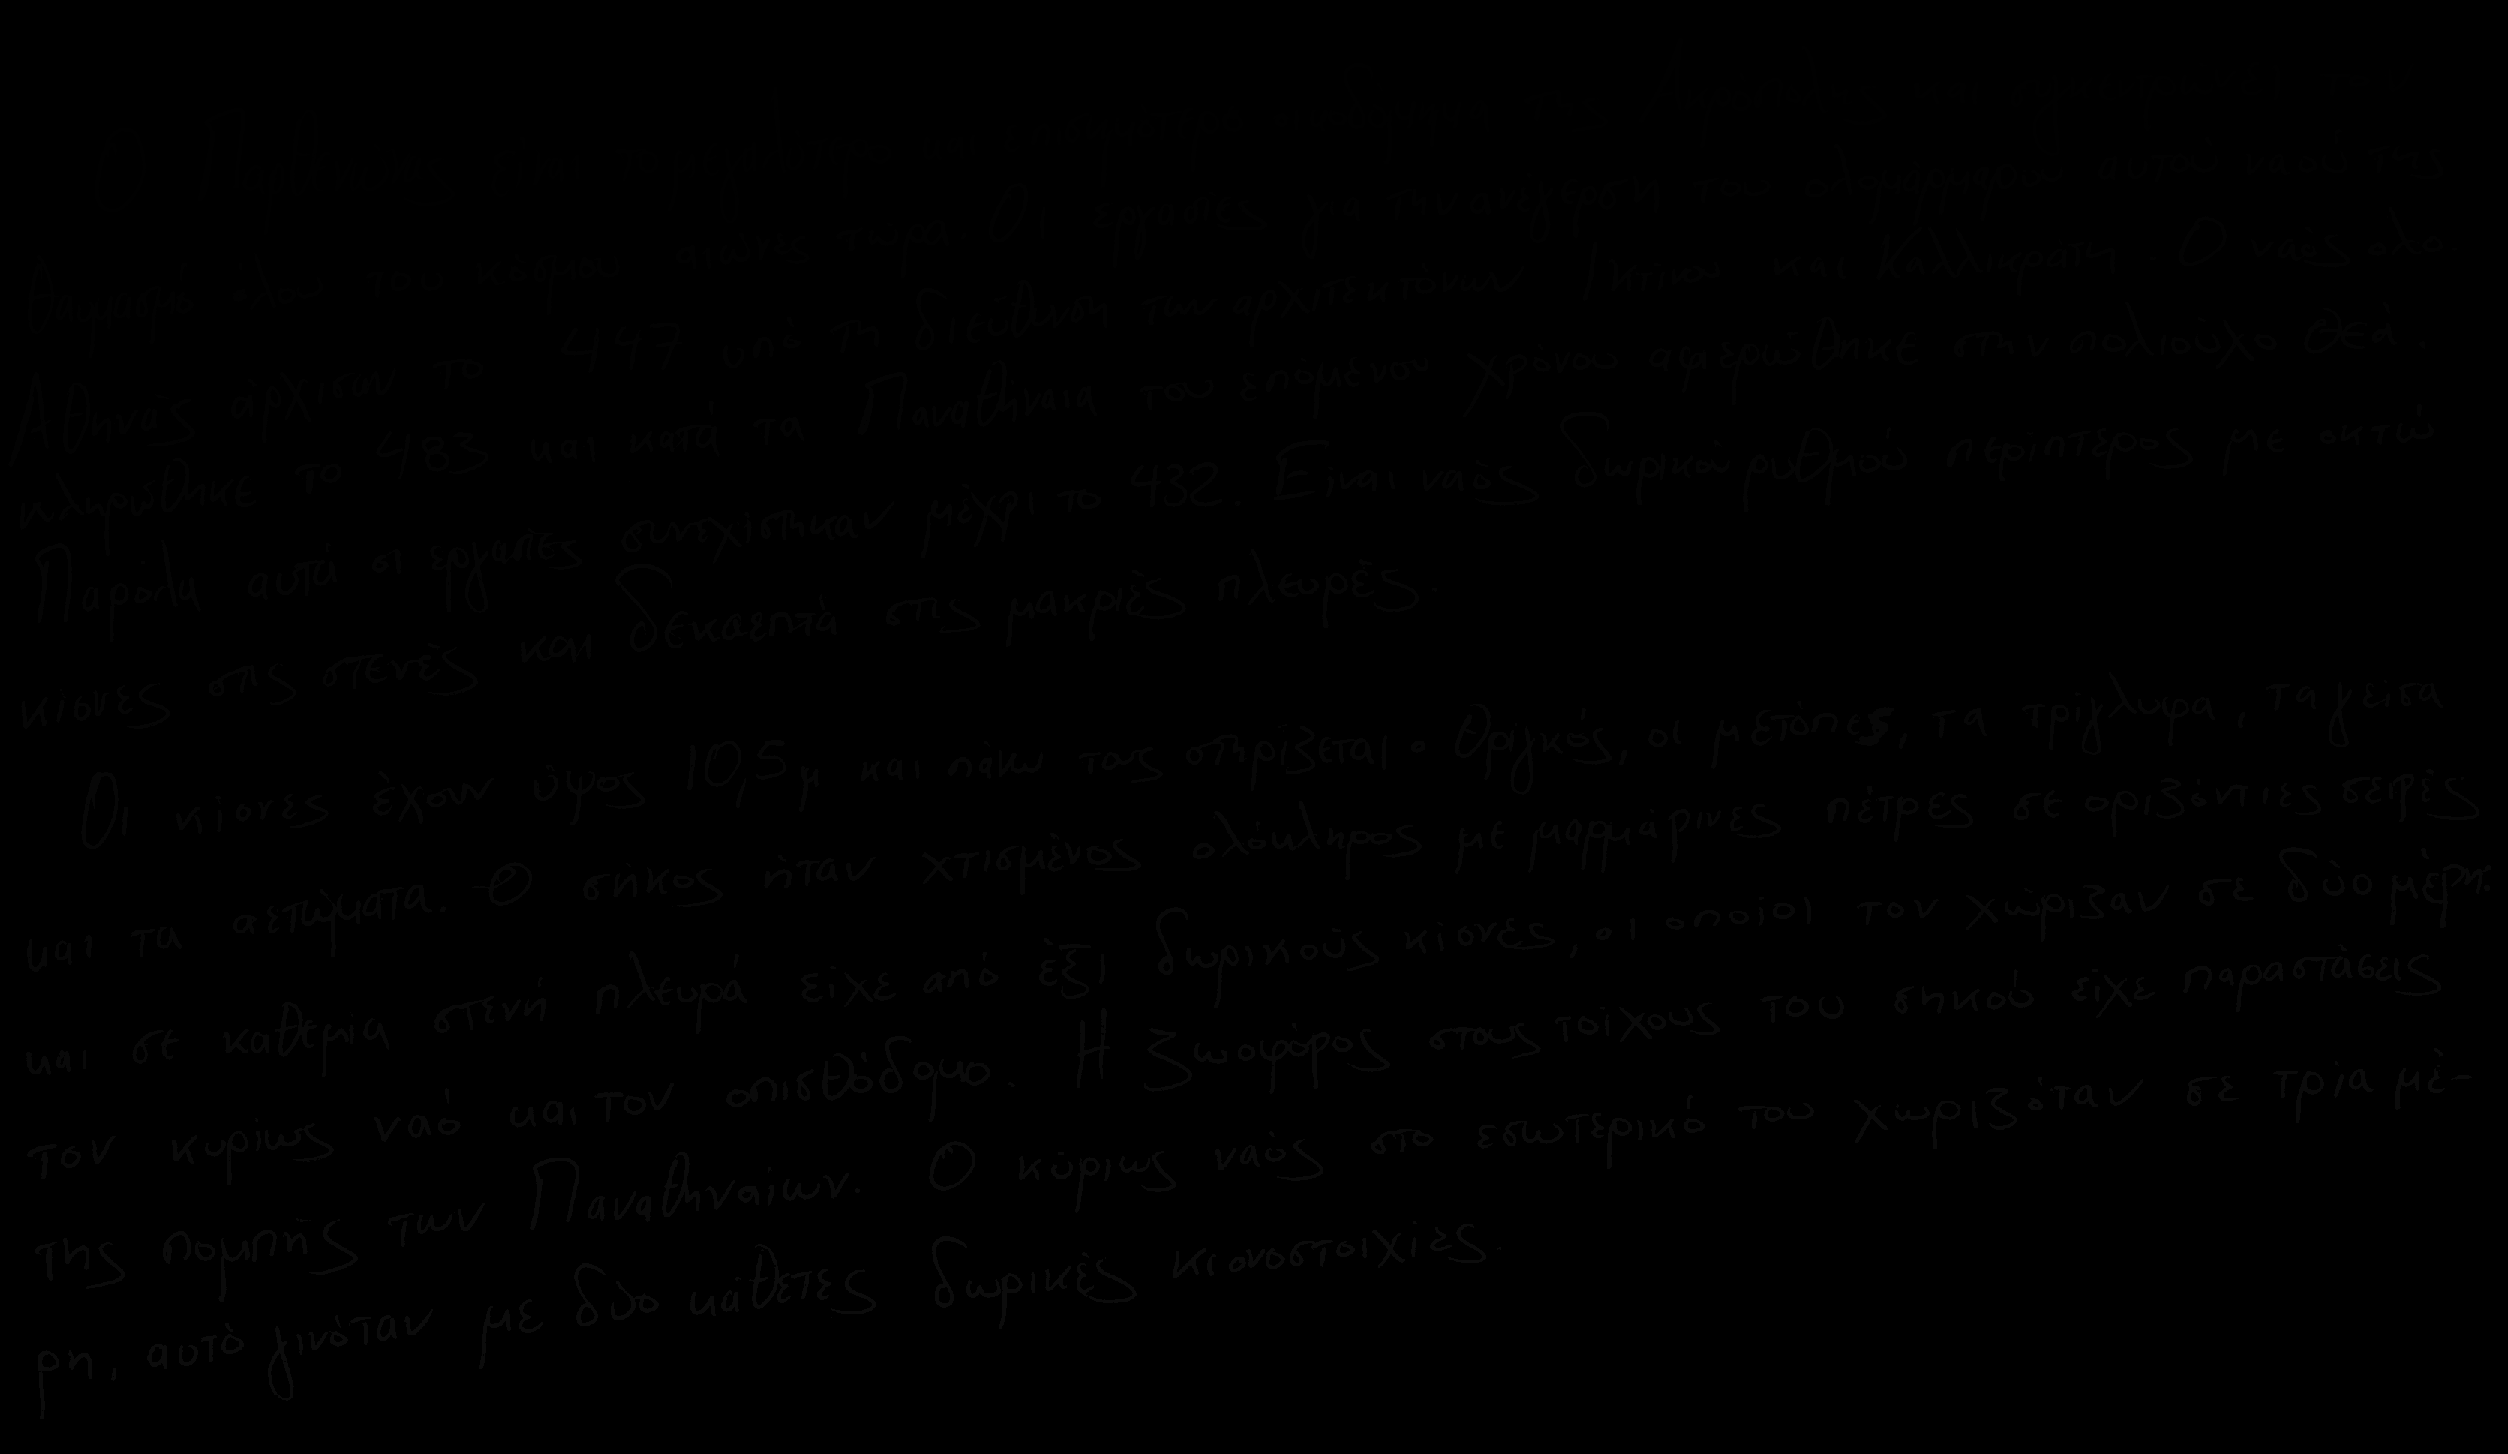 Ο Παρθενώνας
θαυμασμό όλου του κόσμου αιώνες τώρα. Οι εργασίες για την ανέγερση του ολομάρμαρου αυτού ναού της
Αθηνάς άρχισαν το 447 υπό τη διεύθυνση των αρχιτεκτόνων Ικτίνου και Καλλικράτη Ο ναός ολο-
κληρώθηκε το 483 και κατά τα Παναθήναια του επόμενου χρόνου αφιερώθηκε στην πολιούχο θεά.
Παρόλα αυτά οι εργασίες συνεχίστηκαν μέχρι το 432. Είναι ναός δωρικού ρυθμού περίπτερος με οκτώ
κίονες στις στενές και δεκαεπτά στις μακριές πλευρές.
Οι κίονες έχουν ύψος 10,5μ και πάνω τους στηρίζεται ο θριγκός, οι μετόπες, τα τρίγλυφα, τα γείσα
και τα αετώματα. Ο σηκός ήταν χτισμένος ολόκληρος με μαρμάρινες πέτρες σε οριζόντιες σειρές
και σε καθεμία στενή πλευρά είχε από έξι δωρικούς κίονες, οι οποίοι τον χώριζαν σε δύο μέρη.
τον κυρίως ναό και τον οπισθόδομο. Η ζωοφόρος στους τοίχους του σηκού είχε παραστάσεις
της πομπής των Παναθηναίων. Ο κύριως ναός στο εσωτερικό του χωριζόταν σε τρία μέ-
ρη, αυτό γινόταν με δύο κάθετες δωρικές κιονοστοιχίες.